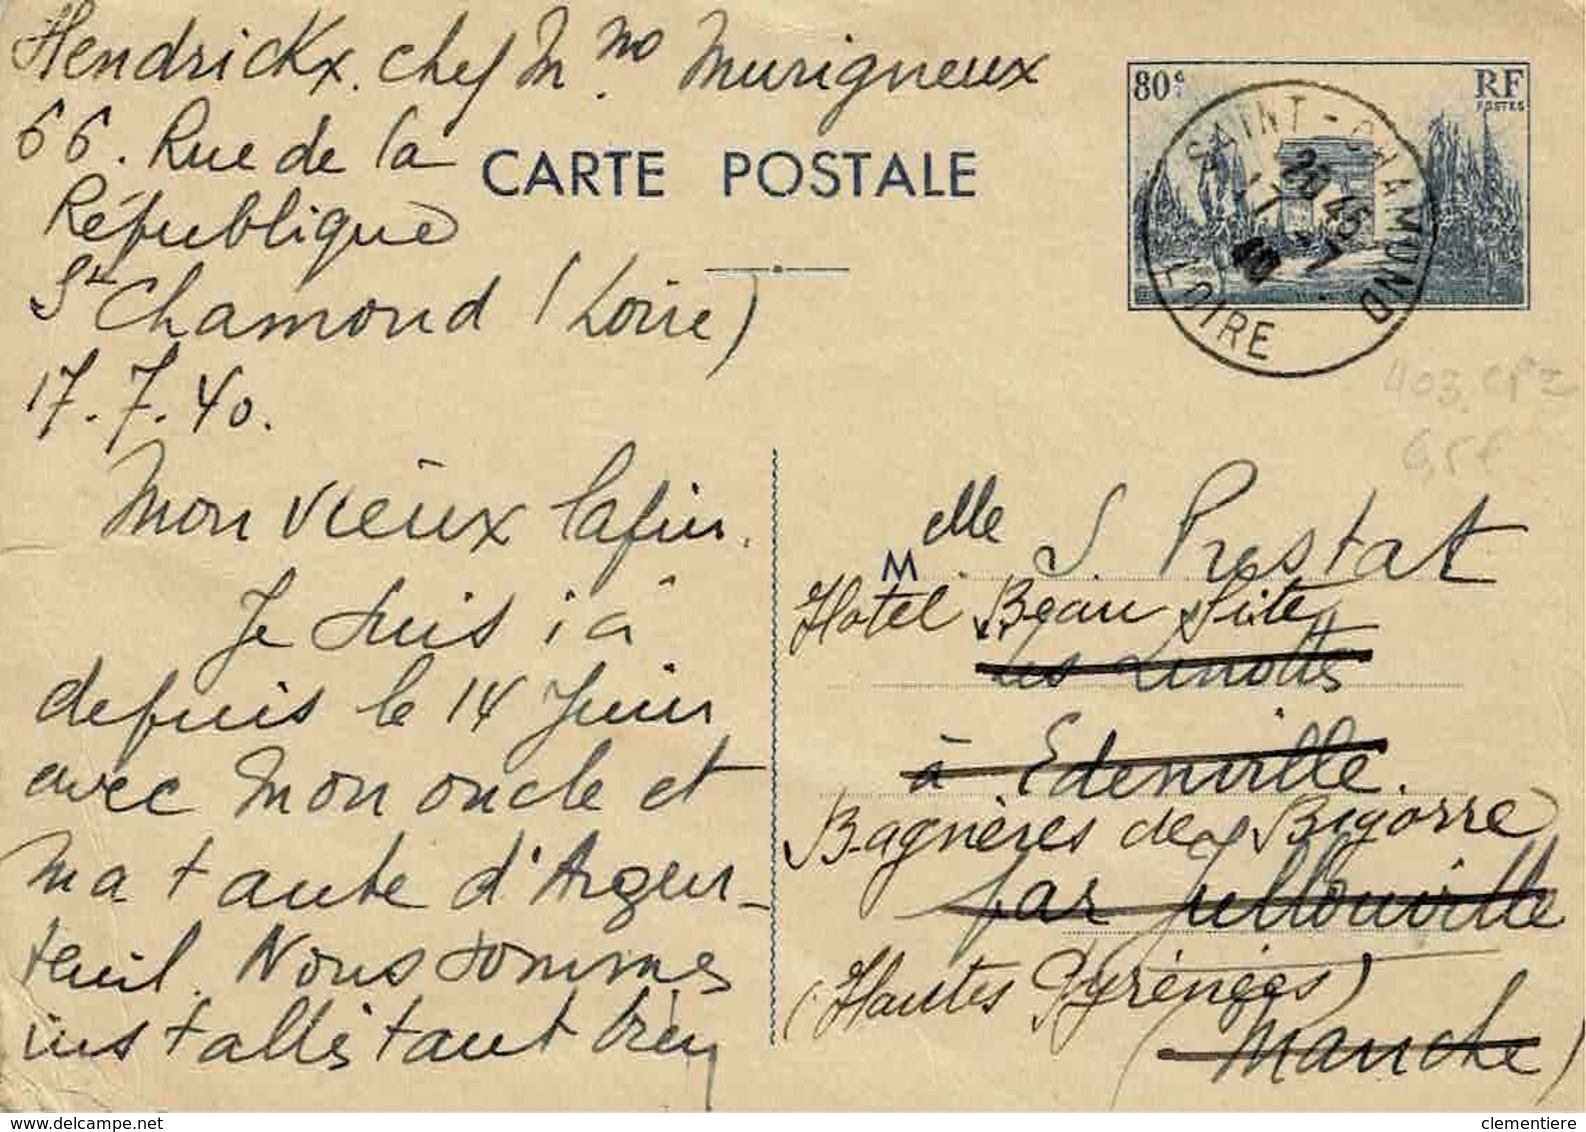 Hendrickx. chez Mr. no Murigneux
66. Rue de la
République
St Chamond (Loire)
17.7.40.
CARTE POSTALE
80c
RF
POSTES
SAINT-CHAMOND
20 45
LOIRE
403 CP2
6,5€
Mon vieux lapin.
Je suis ici
depuis le 14 Juin
avec mon oncle et
ma tante d'Argen-
teuil. Nous sommes
installés tant bien
Melle S. Prestat
Hotel Beau Site
Les Linottes
à Edenville.
Bagnères de Bigorre
par Jullouville
(Hautes Pyrénées)
(Manche)
delcampe.net
clementiere